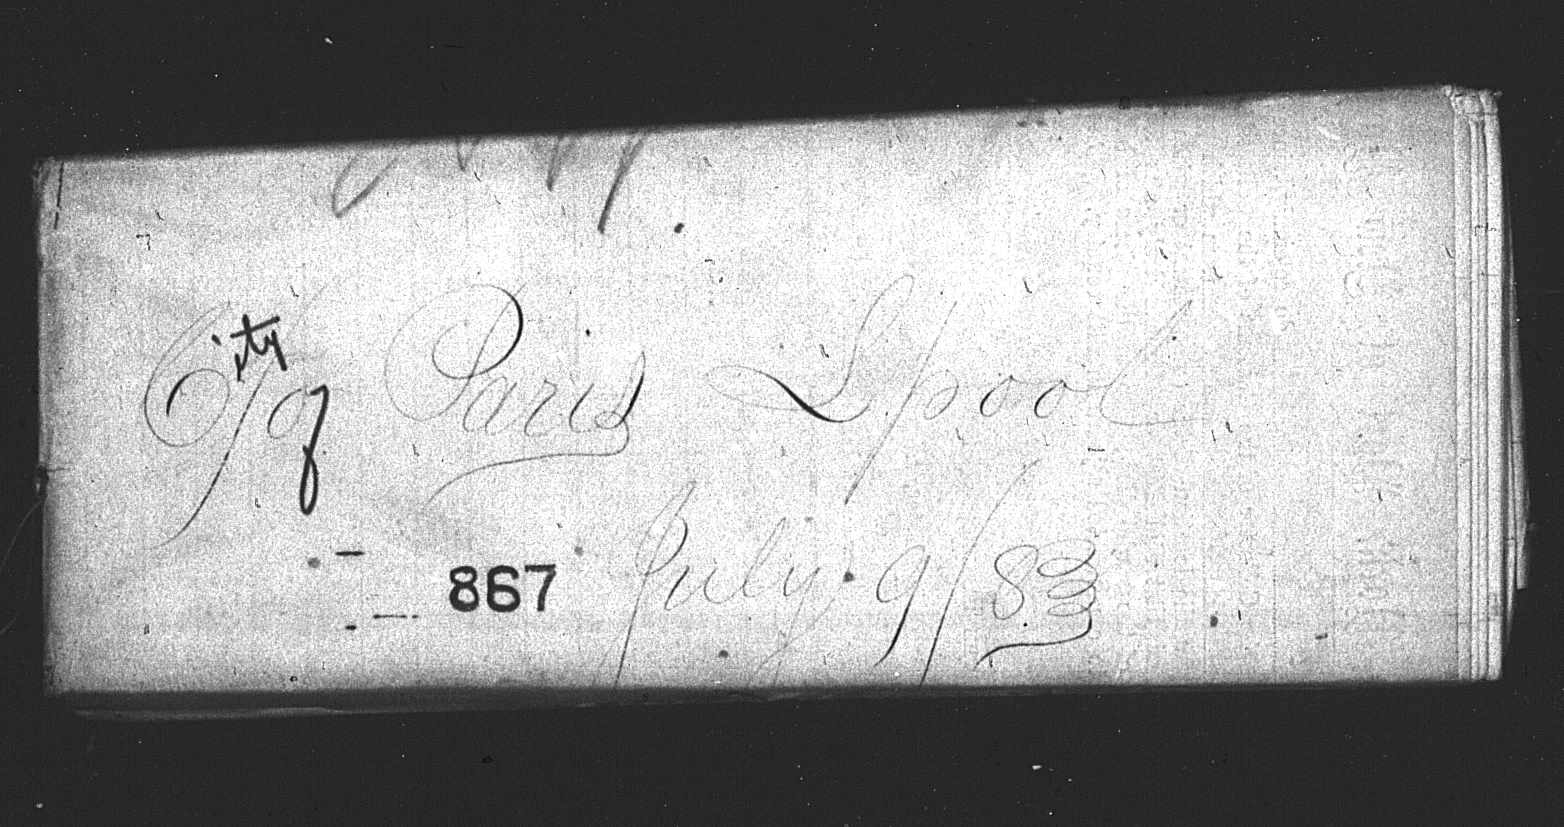 City of Paris L'pool
867 July 9/83